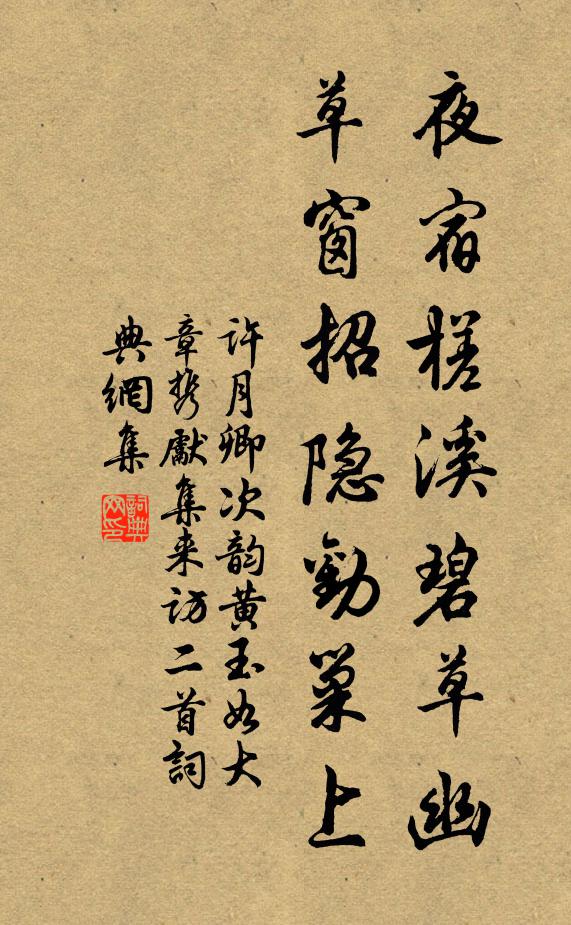 夜宿槎溪碧草幽
草窗招隐勸巢上
许月卿次韵黄玉如大
章携獻集来访二首詞
典網集
詞典